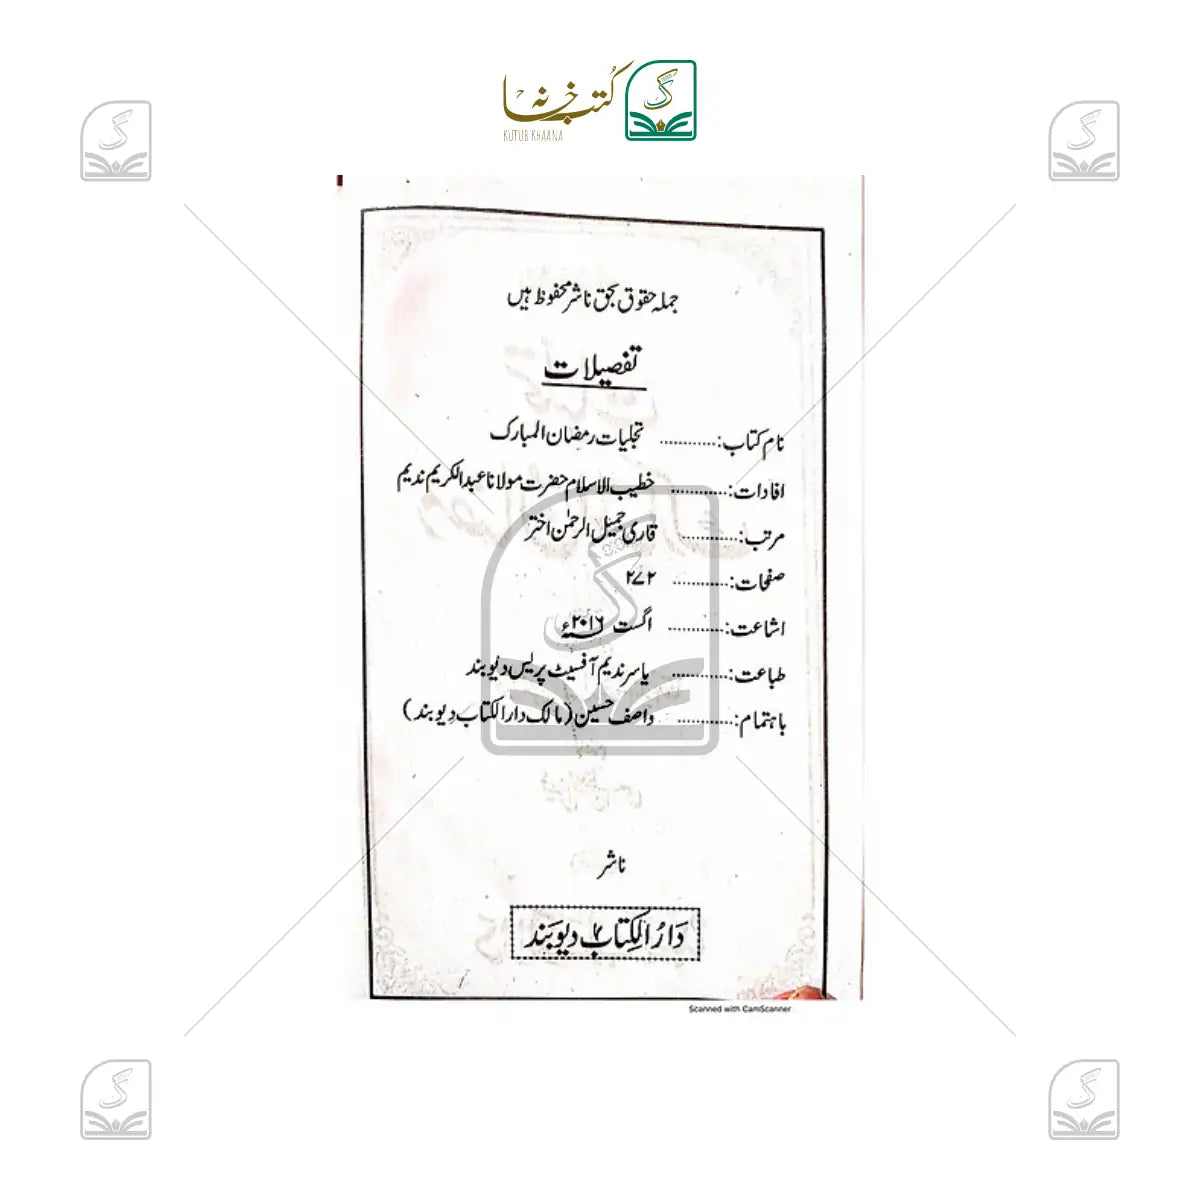 کتب خانہ
KUTUB KHAANA
جملہ حقوق بحق ناشر محفوظ ہیں
تفصیلات
نام کتاب: ............ تجلیات رمضان المبارک
افادات: ............ خطیب الاسلام حضرت مولانا عبدالکریم ندیم
مرتب: ............ قاری جمیل الرحمٰن اختر
صفحات: ............ ۲۷۲
اشاعت: ............ اگست ۲۰۱۶ء
طباعت: ............ یاسر ندیم آفسیٹ پریس دیوبند
باہتمام: ............ واصف حسین (مالک دارالکتاب دیوبند)
ناشر
دَارُالکِتَابْ دیوبَند
Scanned with CamScanner